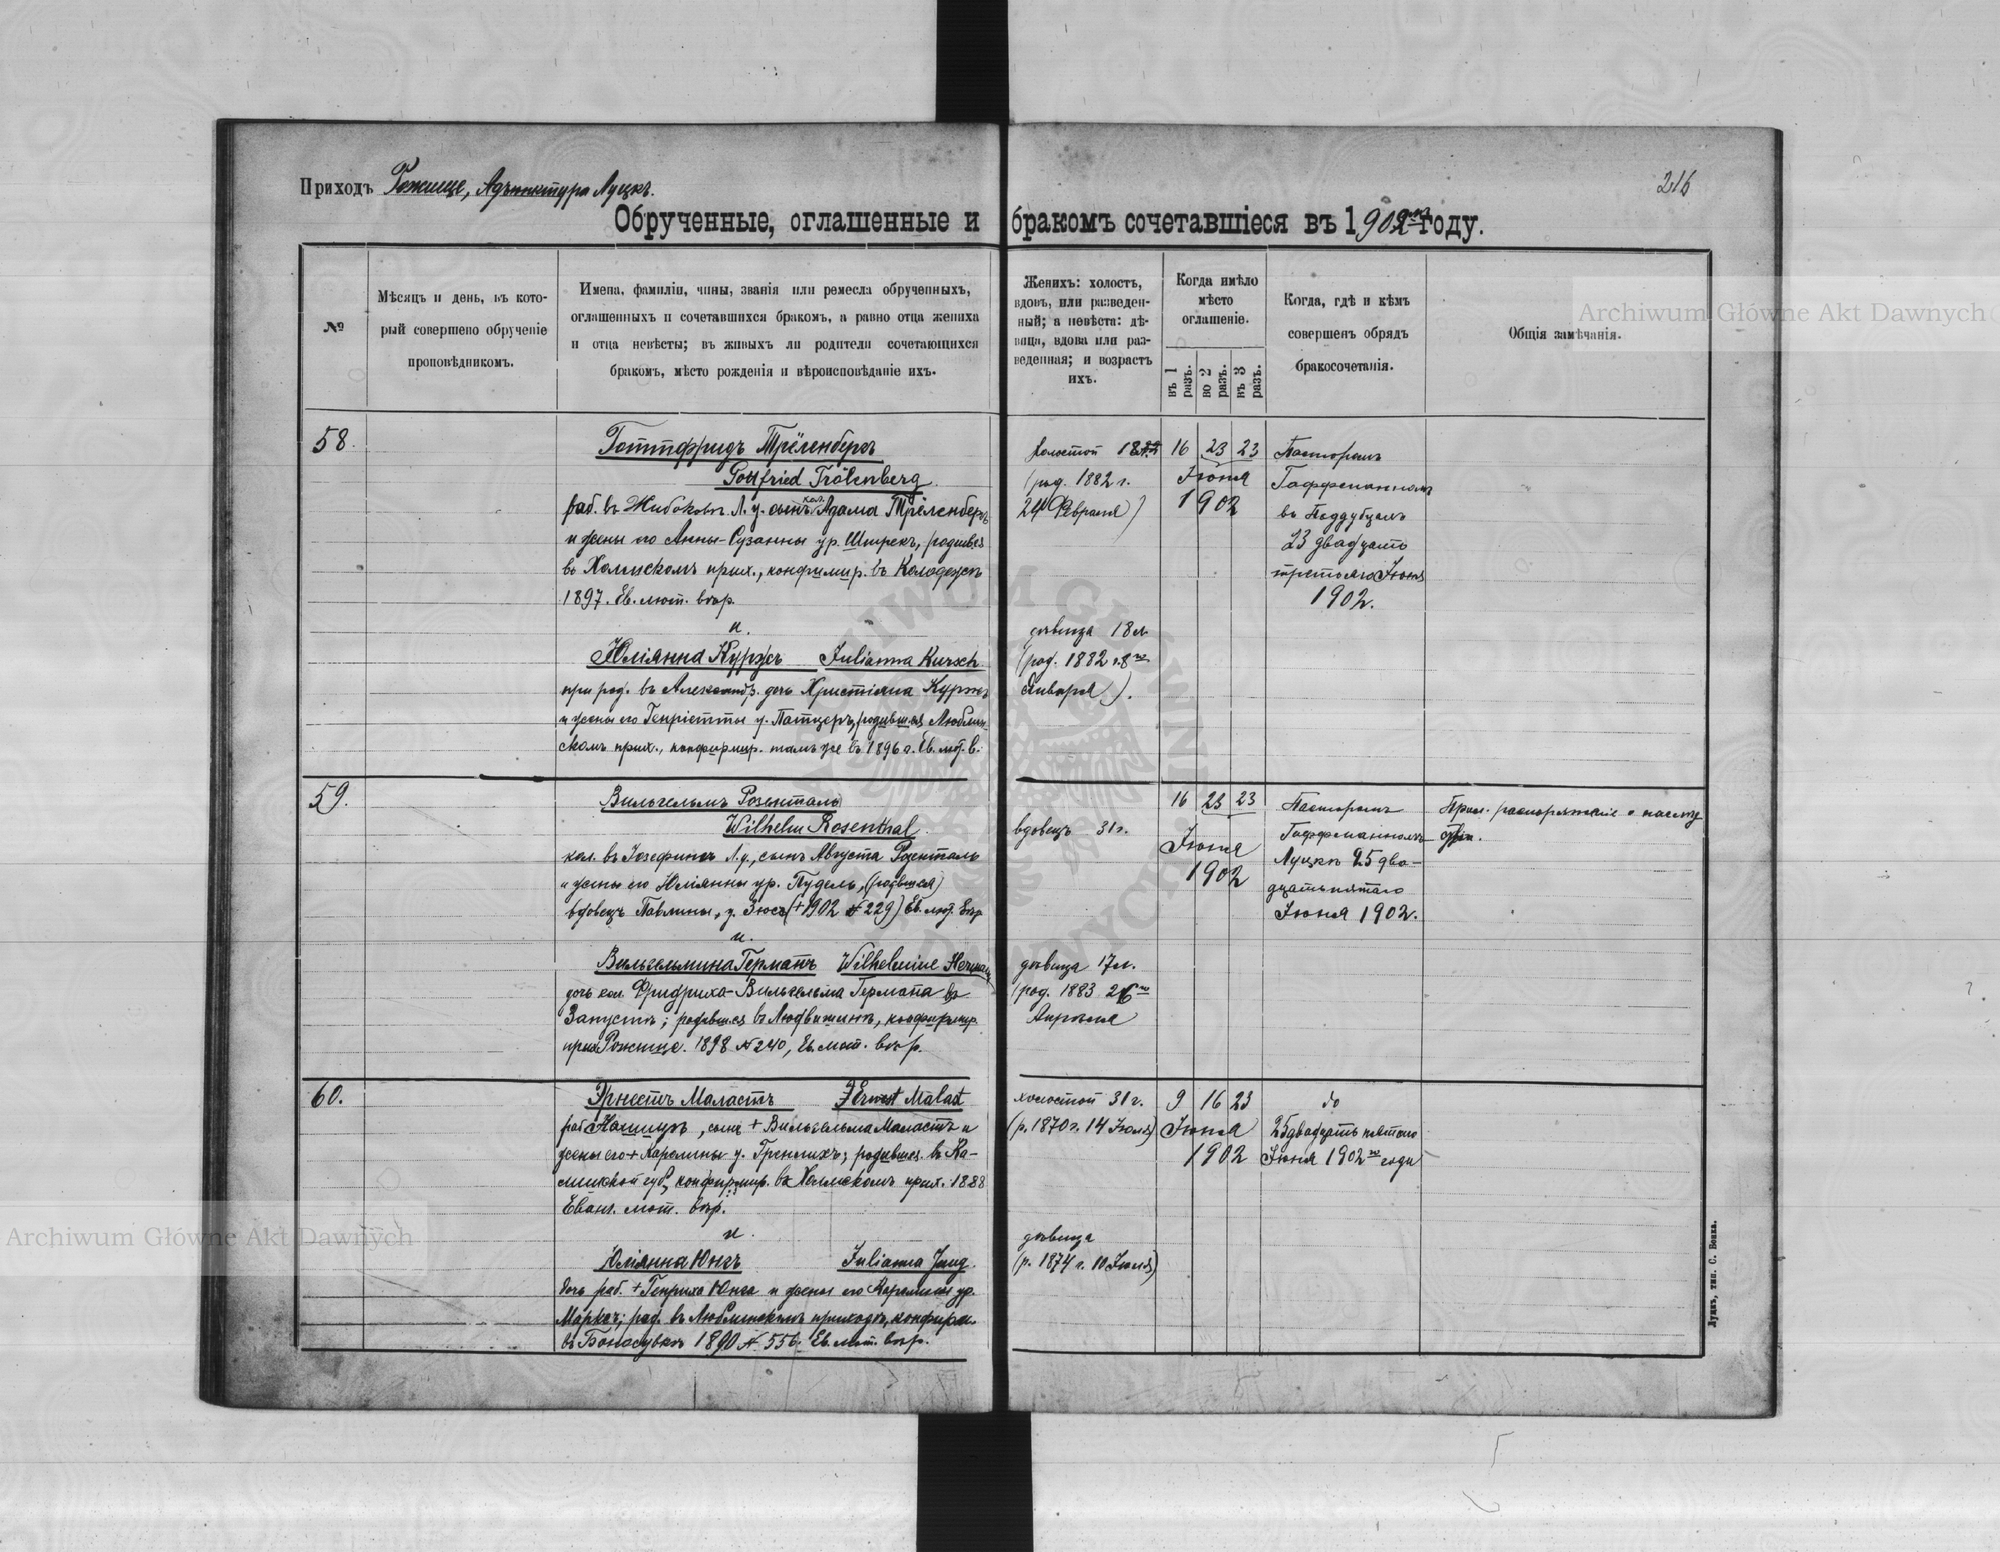 Приходъ Рожище, Адъюнктура Луцкъ.
216
Обрученные, оглашенные и бракомъ сочетавшіеся въ 1902 году.
№
Мѣсяцъ и день, въ кото-
рый совершено обрученіе
проповѣдникомъ.
Имена, фамиліи, чины, званія или ремесла обрученныхъ,
оглашенныхъ и сочетавшихся бракомъ, а равно отца жениха
и отца невѣсты; въ живыхъ ли родители сочетающихся
бракомъ, мѣсто рожденія и вѣроисповѣданіе ихъ.
Женихъ: холостъ,
вдовъ, или разведен-
ный; а невѣста: дѣ-
вица, вдова или раз-
веденная; и возрастъ
ихъ.
Когда имѣло
мѣсто
оглашеніе.
въ 1 разъ.
во 2 разъ.
въ 3 разъ.
Когда, гдѣ и кѣмъ
совершенъ обрядъ
бракосочетанія.
Общія замѣчанія.
58.
Готтфридъ Трёленбергъ
Gottfried Trölenberg
раб. въ Жабокѣ Л. у. сынъ кол. Адама Трёленбергъ
и жены его Анны-Сузанны ур. Штрекъ, родився
въ Холмскомъ прих., конфирмир. въ Колодежѣ
1897. Ев. лют. вѣр.
и.
Юліянна Куржъ Julianna Kursch
при род. въ Александр. дочь Христіяна Куржъ
и жены его Генріетты у. Патцеръ, родившаяся Люблин-
скомъ прих., конфирмир. тамъ же въ 1896 г. Ев. лют. в.
холостой
(род. 1882 г.
24 Февраля)
дѣвица 18 л.
(род. 1882 г. 8го
Января).
16 23 23
Іюня
1902
Пасторомъ
Гаффеманномъ
въ Поддубцахъ
23 двадцать
третьяго Іюня
1902.
59.
Вильгельмъ Розенталь
Wilhelm Rosenthal
кол. въ Іозефинѣ Л. у., сынъ Августа Розенталь
и жены его Юліянны ур. Пудель, (родився)
вдовецъ Павлины, у. Зюсъ (+1902 № 229) Ев. лют. вѣр.
и.
Вильгельмина Германъ Wilhelmine Hermann
дочь кол. Фридриха-Вильгельма Германа въ
Запустѣ; родившаяся въ Людвишинѣ, конфирмир.
прих. Рожище. 1898 № 240, Ев. лют. вѣр.
вдовецъ 31 г.
дѣвица 17 л.
(род. 1883 26го
Апрѣля
16 23 23
Іюня
1902
Пасторомъ
Гаффеманномъ
Луцкѣ 25 два-
дцать пятаго
Іюня 1902.
60.
Эрнестъ Маластъ Ernst Malast
раб. , сынъ + Вильгельма Маластъ и
жены его + Каролины у. Гренлихъ; родився въ Ка-
лишской губ., конфирмир. въ Холмскомъ прих. 1888
Еванг. лют. вѣр.
и.
Юліянна Юнгъ Julianna Jung
дочь раб. + Генриха Юнга и жены его Каролины ур.
Марксъ; род. въ Люблинскомъ приходѣ, конфирм.
въ 1890 № 556. Ев. лют. вѣр.
холостой 31 г.
(р. 1870 г. 14 Іюля)
дѣвица
(р. 1874 г. 10 Іюля)
9 16 23
Іюня
1902
до
25 двадцать пятаго
Іюня 1902го года
Луцкъ, тип. С. Бонка.
Archiwum Główne Akt Dawnych
Archiwum Główne Akt Dawnych